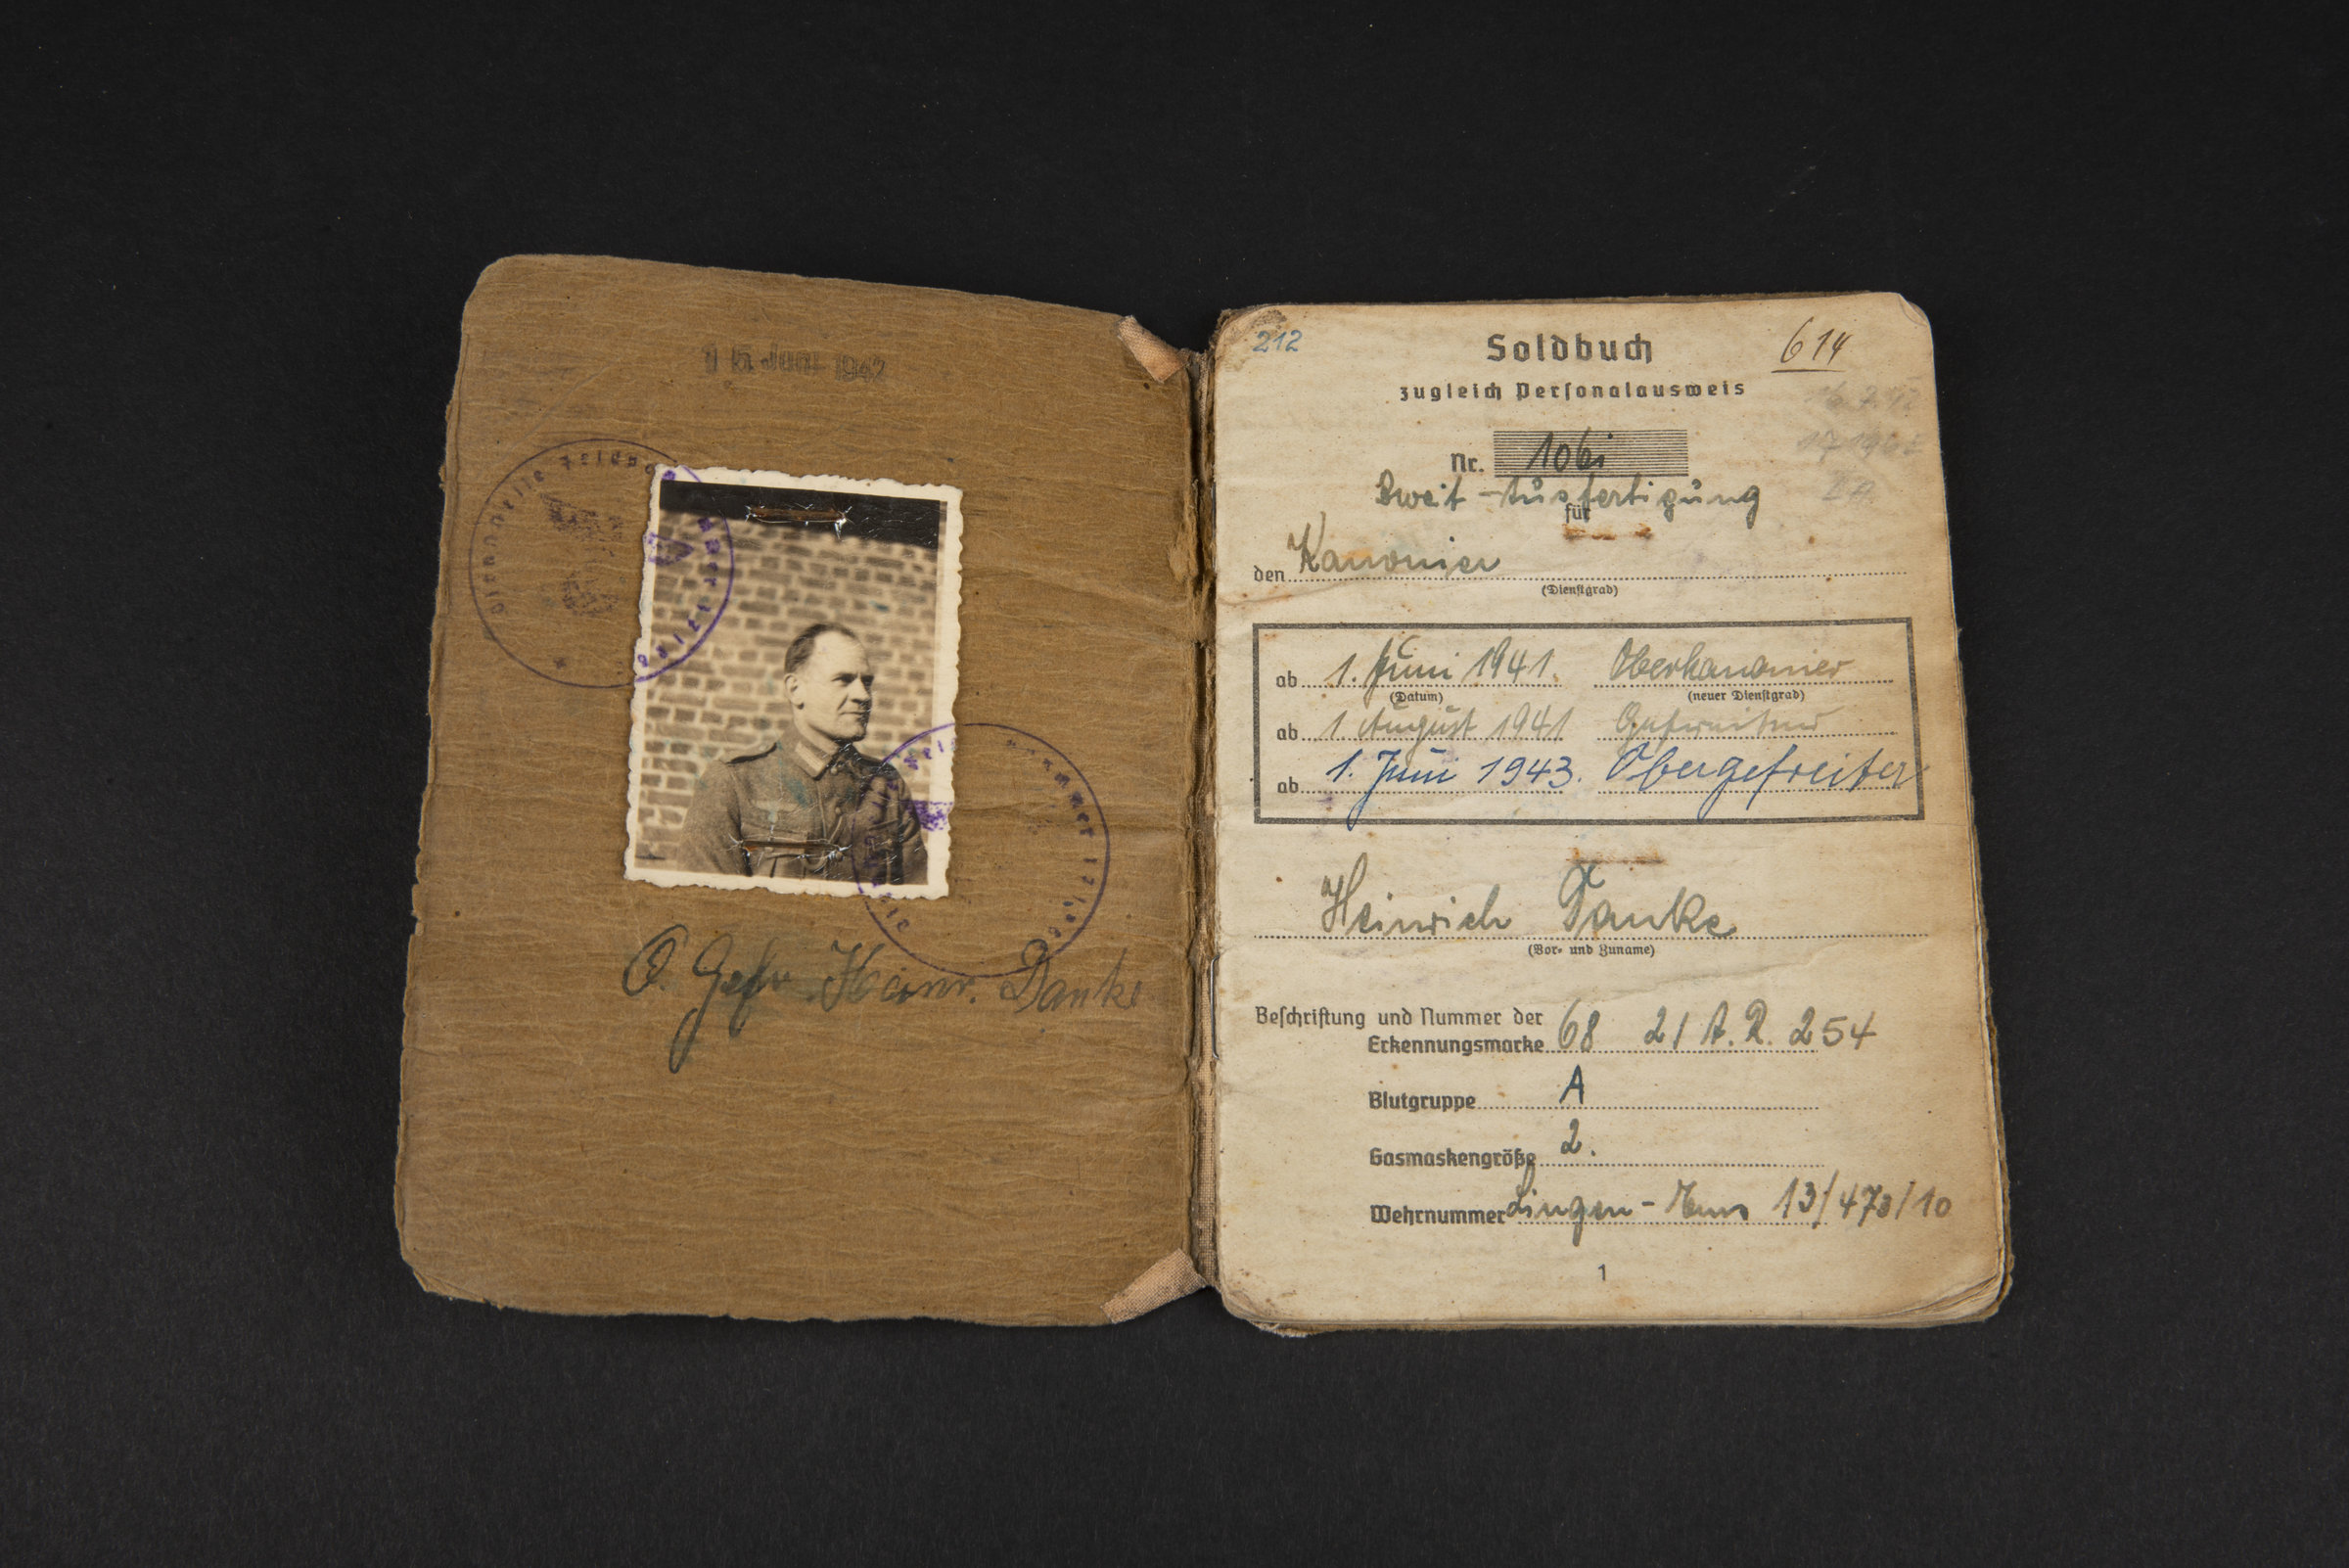 15. Juni 1942
Dienststelle Feldpo
mmer
O. Gefr. Heinr. Danke
212
Soldbuch
614
zugleich Personalausweis
Nr. 106i
Zweit-Ausfertigung
für
den Kanonier
(Dienstgrad)
ab 1. Juni 1941. Oberkanonier
(Datum) (neuer Dienstgrad)
ab 1 August 1941 Gefreiter
ab 1. Juni 1943. Obergefreiter
Heinrich Danke
(Vor- und Zuname)
Beschriftung und Nummer der
Erkennungsmarke 68 21 A.R. 254
Blutgruppe A
Gasmaskengröße 2.
Wehrnummer Lingen-Ems 13/473/10
1